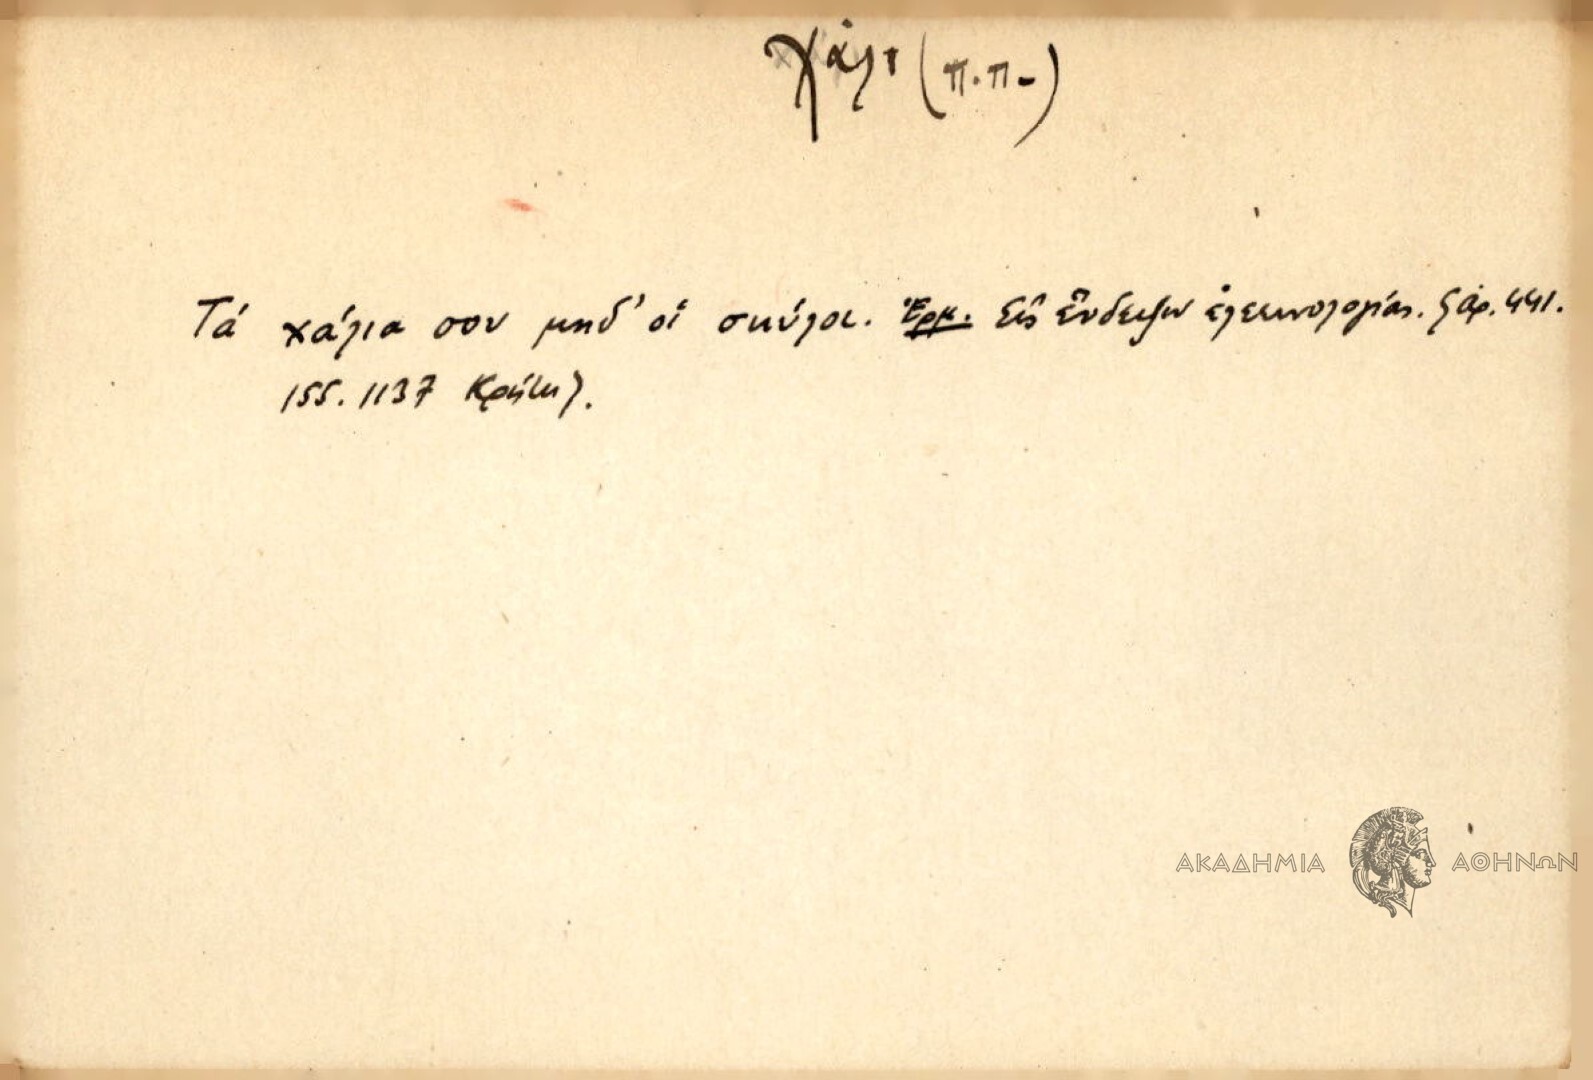 χάλι (π.π-)
Τά χάλια σου μηδ' οἱ σκύλοι. Ἑρμ. Εἰς ἔνδειξιν ἐλεεινολογίας. ἀρ. 441.
155. 1137 Κρήτη).
ΑΚΑΔΗΜΙΑ ΑΘΗΝΩΝ